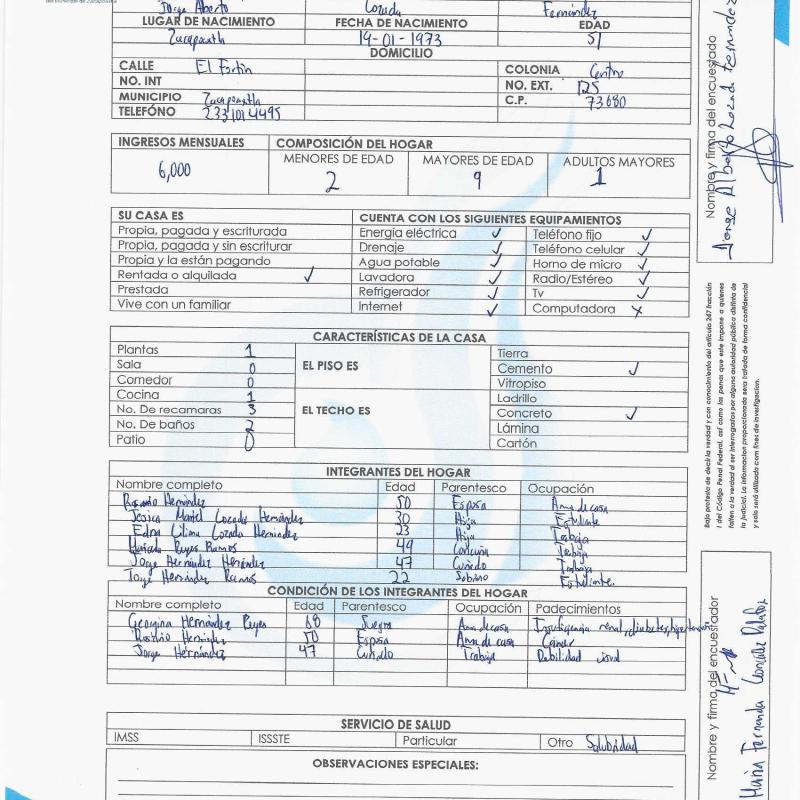 Jorge Alberto Lozada Fernández
LUGAR DE NACIMIENTO FECHA DE NACIMIENTO EDAD
Zacapoaxtla 19-01-1973 51
DOMICILIO
CALLE El Fortín COLONIA Centro
NO. INT NO. EXT. 125
MUNICIPIO Zacapoaxtla C.P. 73680
TELEFÓNO 233 101 4495
INGRESOS MENSUALES COMPOSICIÓN DEL HOGAR
6,000 MENORES DE EDAD MAYORES DE EDAD ADULTOS MAYORES
2 9 1
SU CASA ES CUENTA CON LOS SIGUIENTES EQUIPAMIENTOS
Propia, pagada y escriturada Energía eléctrica ✓ Teléfono fijo ✓
Propia, pagada y sin escriturar Drenaje ✓ Teléfono celular ✓
Propia y la están pagando Agua potable ✓ Horno de micro ✓
Rentada o alquilada ✓ Lavadora ✓ Radio/Estéreo ✓
Prestada Refrigerador ✓ Tv ✓
Vive con un familiar Internet ✓ Computadora x
CARACTERÍSTICAS DE LA CASA
Plantas 1 Tierra
Sala 0 EL PISO ES Cemento ✓
Comedor 0 Vitropiso
Cocina 1 Ladrillo
No. De recamaras 3 EL TECHO ES Concreto ✓
No. De baños 2 Lámina
Patio 0 Cartón
INTEGRANTES DEL HOGAR
Nombre completo Edad Parentesco Ocupación
Rosario Hernández 50 Esposa Ama de casa
Jesica Mariel Lozada Hernández 30 Hija Estudiante
Edna Liliana Lozada Hernández 23 Hija Trabaja
Reyes Ramos 49 Concuña Trabaja
Jorge Hernández Hernández 47 Cuñado Trabaja
Jorge Hernández Ramos 22 Sobrino Estudiante
CONDICIÓN DE LOS INTEGRANTES DEL HOGAR
Nombre completo Edad Parentesco Ocupación Padecimientos
Georgina Hernández Reyes 68 Suegra Ama de casa Insuficiencia renal, diabetes, hipertensión
Rosario Hernández 50 Esposa Ama de casa Cáncer
Jorge Hernández 47 Cuñado Trabaja Debilidad visual
SERVICIO DE SALUD
IMSS ISSSTE Particular Otro Salubridad
OBSERVACIONES ESPECIALES:
Nombre y firma del encuestado
Jorge Alberto Lozada Fernandez
Bajo protesta de decir la verdad y con conocimiento del artículo 247 fracción
I del Código Penal Federal, así como las penas que este impone a quienes
falten a la verdad al ser interrogados por alguna autoridad pública distinta de
la judicial. La información proporcionada será tratada de forma confidencial
y solo será utilizada con fines de investigación.
Nombre y firma del encuestador
María Fernanda González